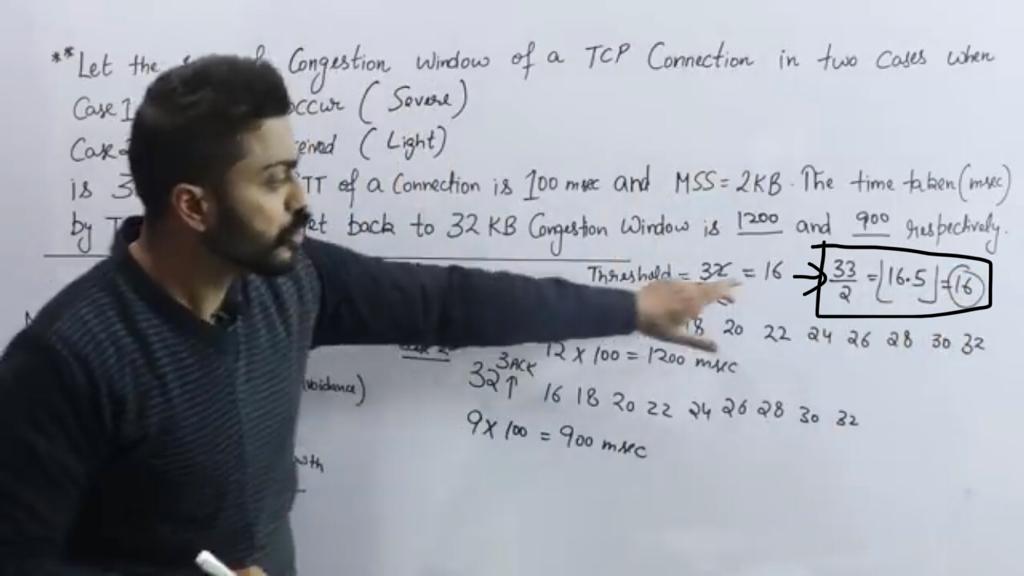 **Let the Congestion Window of a TCP Connection in two Cases when
Case 1 occur (Severe)
Case (Light)
is 3 of a Connection is 100 msec and MSS = 2KB. The time taken (msec)
by back to 32 KB Congestion Window is 1200 and 900 respectively.
Threshold = 32 = 16 → 33/2 = ⌊16.5⌋ = 16
18 20 22 24 26 28 30 32
12 × 100 = 1200 msec
32↑ 3ACK 16 18 20 22 24 26 28 30 32
9 × 100 = 900 msec